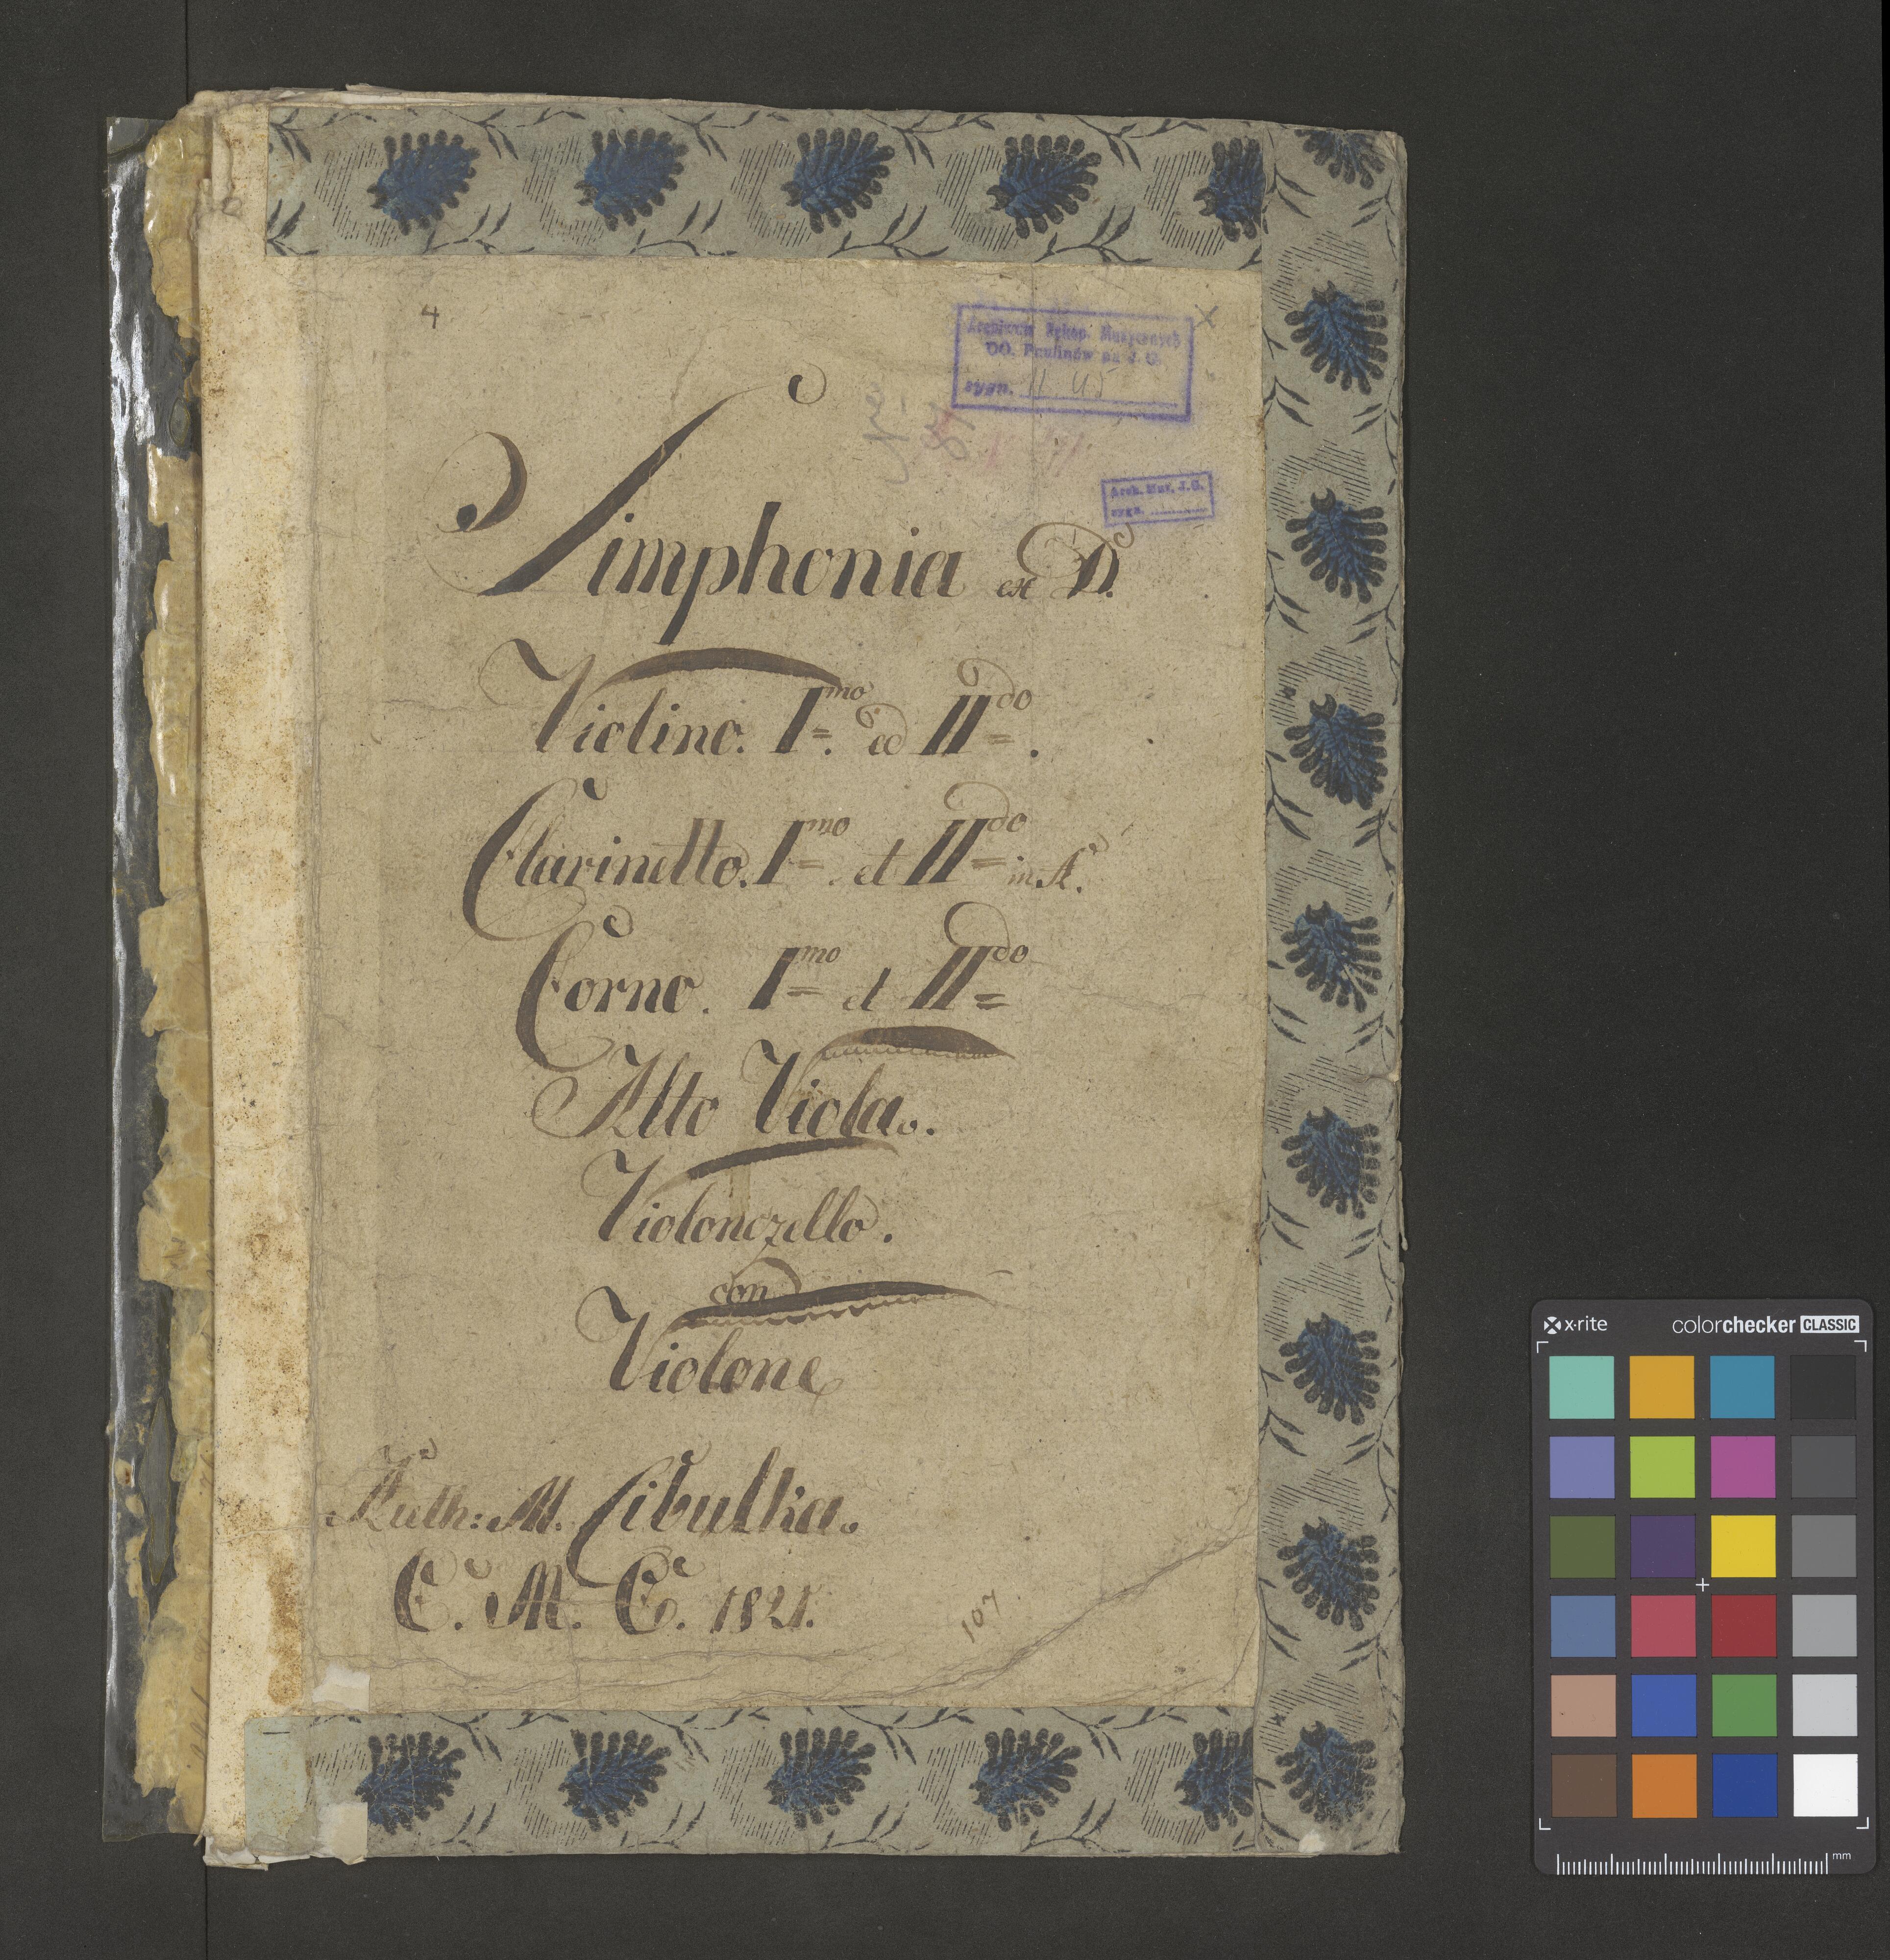 4
X
Archiwum Rękop. Muzycznych
OO. Paulinów na J. G.
sygn. II
Arch. Muz. J. G.
sygn.
Simphonia ex D.
Violino. I=mo. ed II=do.
Clarinetto. I=mo. et II=do in A.
Corno. I=mo et II=do
Alto Viola.
Violonczello.
con
Violone
Auth: M. Cibulka.
C. M. C. 1821.
107
x·rite
colorchecker CLASSIC
mm